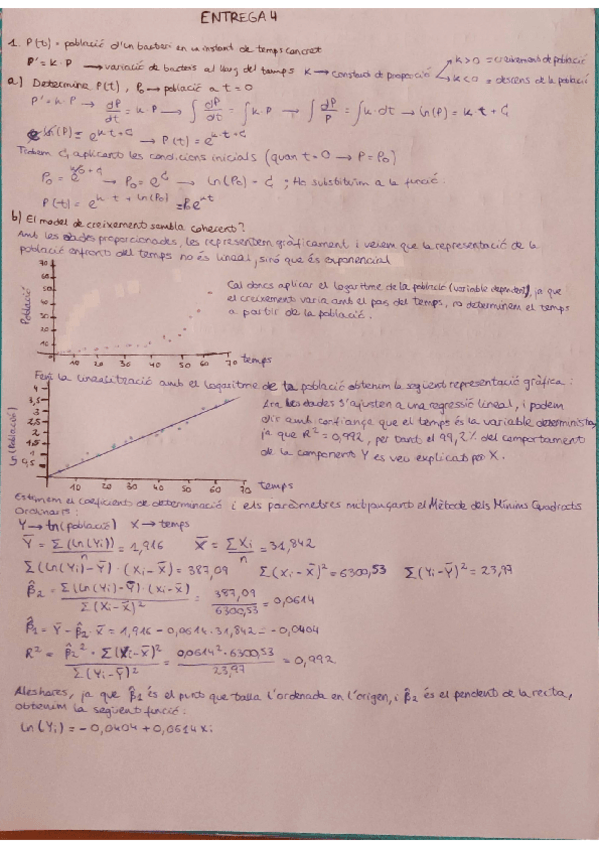 ENTREGA 4
1. P(t) = població d'un bacteri en un instant de temps concret
P' = k·P → variació de bacteris al llarg del temps K → constant de proporció k>0 = creixement de població
k<0 = descens de la població
a) Determina P(t), P₀ → població a t=0
P' = k·P → dP/dt = k·P → ∫ dP/dt = ∫ k·P → ∫ dP/P = ∫ k·dt → ln(P) = k·t + C
e^ln(P) = e^k·t+C → P(t) = e^k·t+C
Trobem C, aplicant les condicions inicials (quan t=0 → P=P₀)
P₀ = e^k·0+C → P₀ = e^C → ln(P₀) = C ; Ho substituïm a la funció.
P(t) = e^k·t+ln(P₀) = P₀e^kt
b) El model de creixement sembla coherent?
Amb les dades proporcionades, les representem gràficament i veiem que la representació de la
població enfront del temps no és lineal, sinó que és exponencial
Població
70
60
50
40
30
20
10
10 20 30 40 50 60 70 temps
Cal doncs aplicar el logaritme de la població (variable dependent), ja que
el creixement varia amb el pas del temps, no determinem el temps
a partir de la població.
Fent la linealització amb el logaritme de la població obtenim la següent representació gràfica:
Ln(Població)
4
3,5
3
2,5
2
1,5
1
0,5
10 20 30 40 50 60 70 temps
Ara les dades s'ajusten a una regressió lineal, i podem
dir amb confiança que el temps és la variable determinista,
ja que R² = 0,992, per tant el 99,2% del comportament
de la component Y es veu explicat per X.
Estimem el coeficient de determinació i els paràmetres mitjançant el Mètode dels Mínims Quadrats
Ordinaris:
Y → ln(població) X → temps
Ȳ = Σ(ln(Yi))/n = 1,916 X̄ = ΣXi/n = 31,842
Σ(ln(Yi)-Ȳ)·(Xi-X̄) = 387,09 Σ(Xi-X̄)² = 6300,53 Σ(Yi-Ȳ)² = 23,97
β̂₂ = Σ(ln(Yi)-Ȳ)·(Xi-X̄)/Σ(Xi-X̄)² = 387,09/6300,53 = 0,0614
β̂₁ = Ȳ - β̂₂·X̄ = 1,916 - 0,0614·31,842 = -0,0404
R² = β̂₂²·Σ(Xi-X̄)²/Σ(Yi-Ȳ)² = 0,0614²·6300,53/23,97 = 0,992
Aleshores, ja que β̂₁ és el punt que talla l'ordenada en l'origen, i β̂₂ és el pendent de la recta,
obtenim la següent funció:
ln(Yi) = -0,0404 + 0,0614Xi